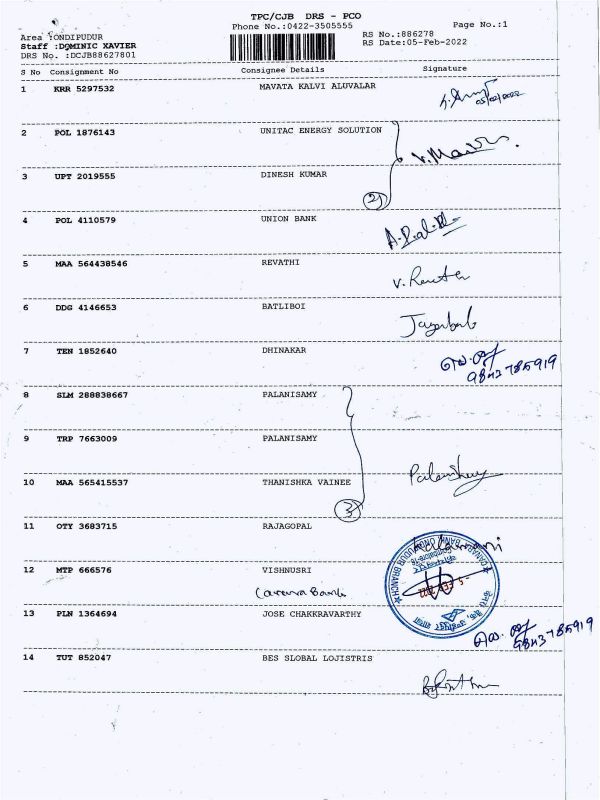 TPC/CJB DRS - PCO
Phone No.:0422-3505555 Page No.:1
Area :ONDIPUDUR RS No.:886278
Staff :DOMINIC XAVIER RS Date:05-Feb-2022
DRS No. :DCJB88627801
S No Consignment No Consignee Details Signature
1 KRR 5297532 MAVATA KALVI ALUVALAR
05/02/2022
2 POL 1876143 UNITAC ENERGY SOLUTION
3 UPT 2019555 DINESH KUMAR
2
4 POL 4110579 UNION BANK
5 MAA 564438546 REVATHI
6 DDG 4146653 BATLIBOI
7 TEN 1852640 DHINAKAR
9843785919
8 SLM 288838667 PALANISAMY
9 TRP 7663009 PALANISAMY
10 MAA 565415537 THANISHKA VAINEE
3
11 OTY 3683715 RAJAGOPAL
12 MTP 666576 VISHNUSRI
Canara Bank
CANARA BANK ONDIPUDUR BRANCH
13 PLN 1364694 JOSE CHAKKRAVARTHY
9843785919
14 TUT 852047 BES SLOBAL LOJISTRIS